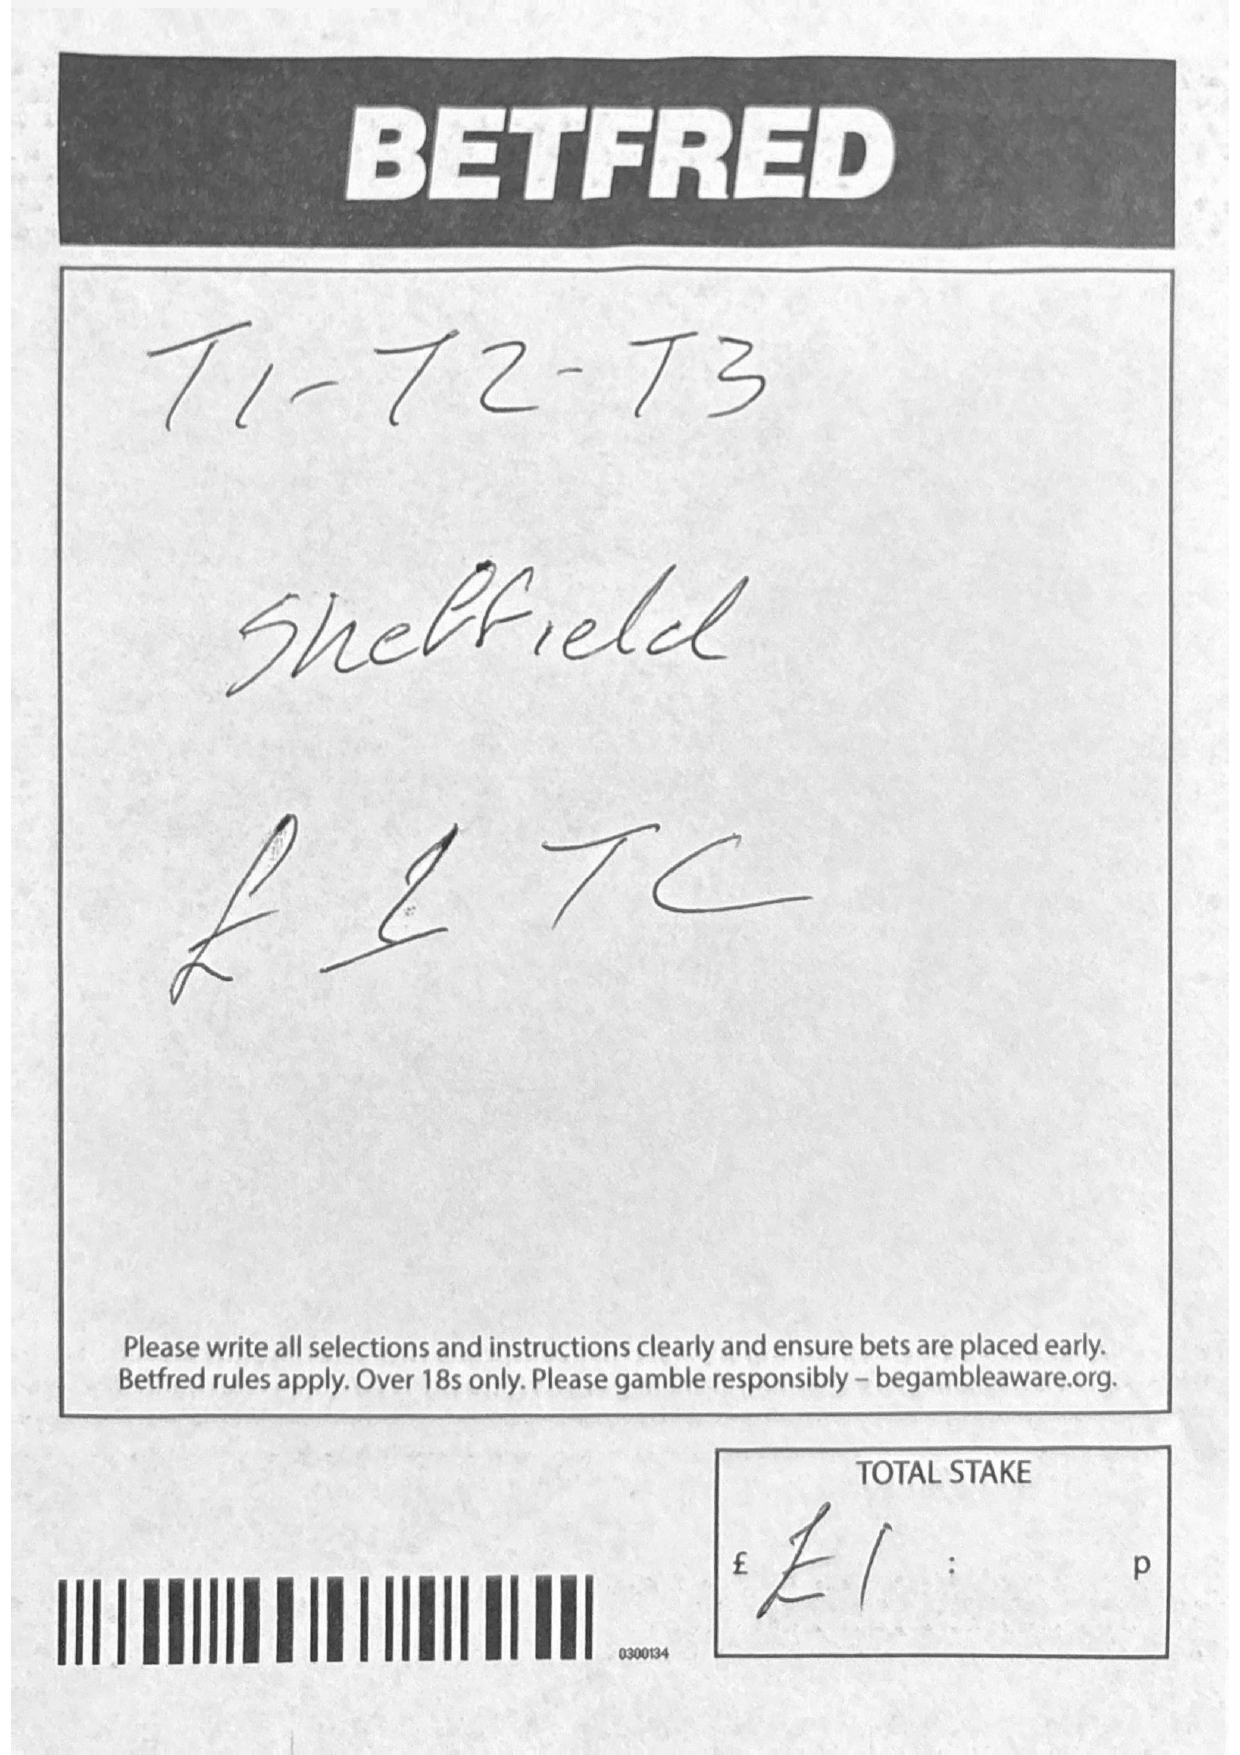 BETFRED
T1-T2-T3
Sheffield
£1 TC
Please write all selections and instructions clearly and ensure bets are placed early.
Betfred rules apply. Over 18s only. Please gamble responsibly – begambleaware.org.
TOTAL STAKE
£ £1 : p
0300134